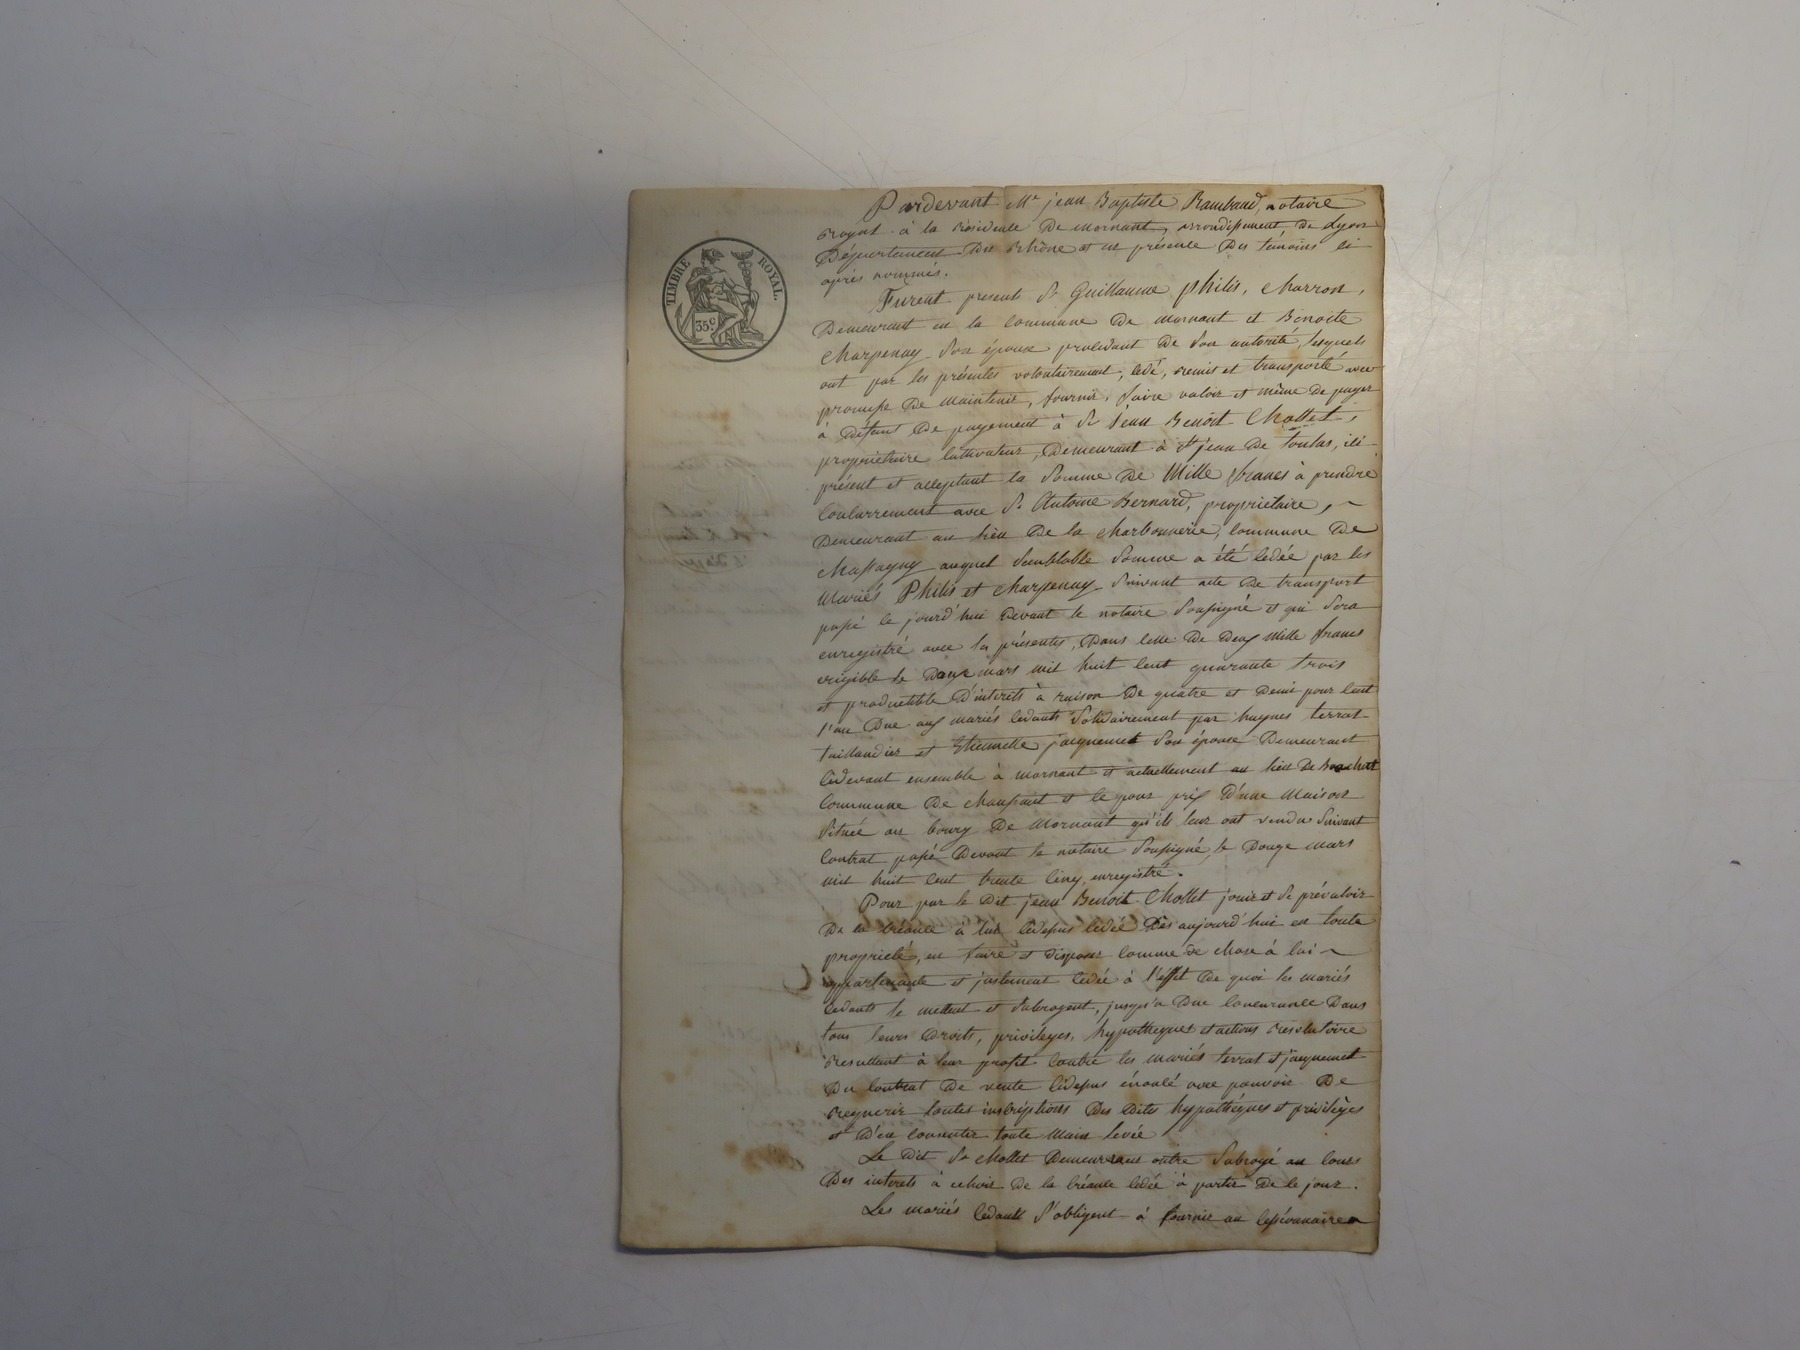 TIMBRE ROYAL.
35.c
Pardevant Me jean Baptiste Rambaud, notaire
royal à la résidence De mornant, arrondissement De Lyon
Département Du Rhône et en présence Des témoins ci
après nommés.
Furent présents Sr Guillaume Philis, charron,
Demeurant en la commune De mornant et Benoite
Charpenay Son épouse procédant De Son autorité, lesquels
ont par les présentes volontairement, cédé, remis et transporté avec
promesse De maintenir, fournir, faire valoir et même De payer
à Défaut De payement à Sr jean Benoit Chollet,
propriétaire cultivateur, Demeurant à St jean De toulas, ici
présent et acceptant la Somme De Mille francs à prendre
Concurremment avec Sr Antoine Bernard, propriétaire,
Demeurant au lieu De la charbonnerie, commune De
Chassagny auquel Semblable Somme a été cédée par les
Mariés Philis et Charpenay Suivant acte De transport
passé ce jourd'hui Devant le notaire Soussigné et qui Sera
enregistré avec les présentes, Dans celle De Deux mille francs
exigible le Douze mars mil huit cent quarante trois
et productible D'intérêts à raison De quatre et Demi pour cent
l'an Due aux mariés cédants Solidairement par hugues terrat
taillandier et Etiennette jacquemet Son épouse Demeurant
Cidevant ensemble à mornant et actuellement au lieu De
Commune De Chaussant et ce pour prix D'une Maison
Située au bourg De Mornant qu'ils leur ont vendu Suivant
Contrat passé Devant le notaire Soussigné, le Douze mars
mil huit cent trente cinq, enregistré.
Pour par le Dit jean Benoit Chollet jouir et Se prévaloir
De la créance à lui cidessus cédée Dès aujourd'hui en toute
propriété, en faire et disposer comme de chose à lui
appartenante et justement cédée à l'effet De quoi les mariés
cédants le mettent et Subrogent, jusqu'a Due concurrence Dans
tous leurs Droits, privilèges, hypothèques et actions résolutoire
résultant à leur profit contre les mariés terrat et jacquemet
Du Contrat De vente cidessus énoncé avec pouvoir De
requerir toutes inscriptions Des Dites hypothèques et privilèges
et D'en consentir toute Main levée
Le Dit Sr Chollet Demeurant outre Subrogé au cours
Des intérêts à échoir De la créance cédée à partir De ce jour.
Les mariés cédants S'obligent à fournir au cessionnaire